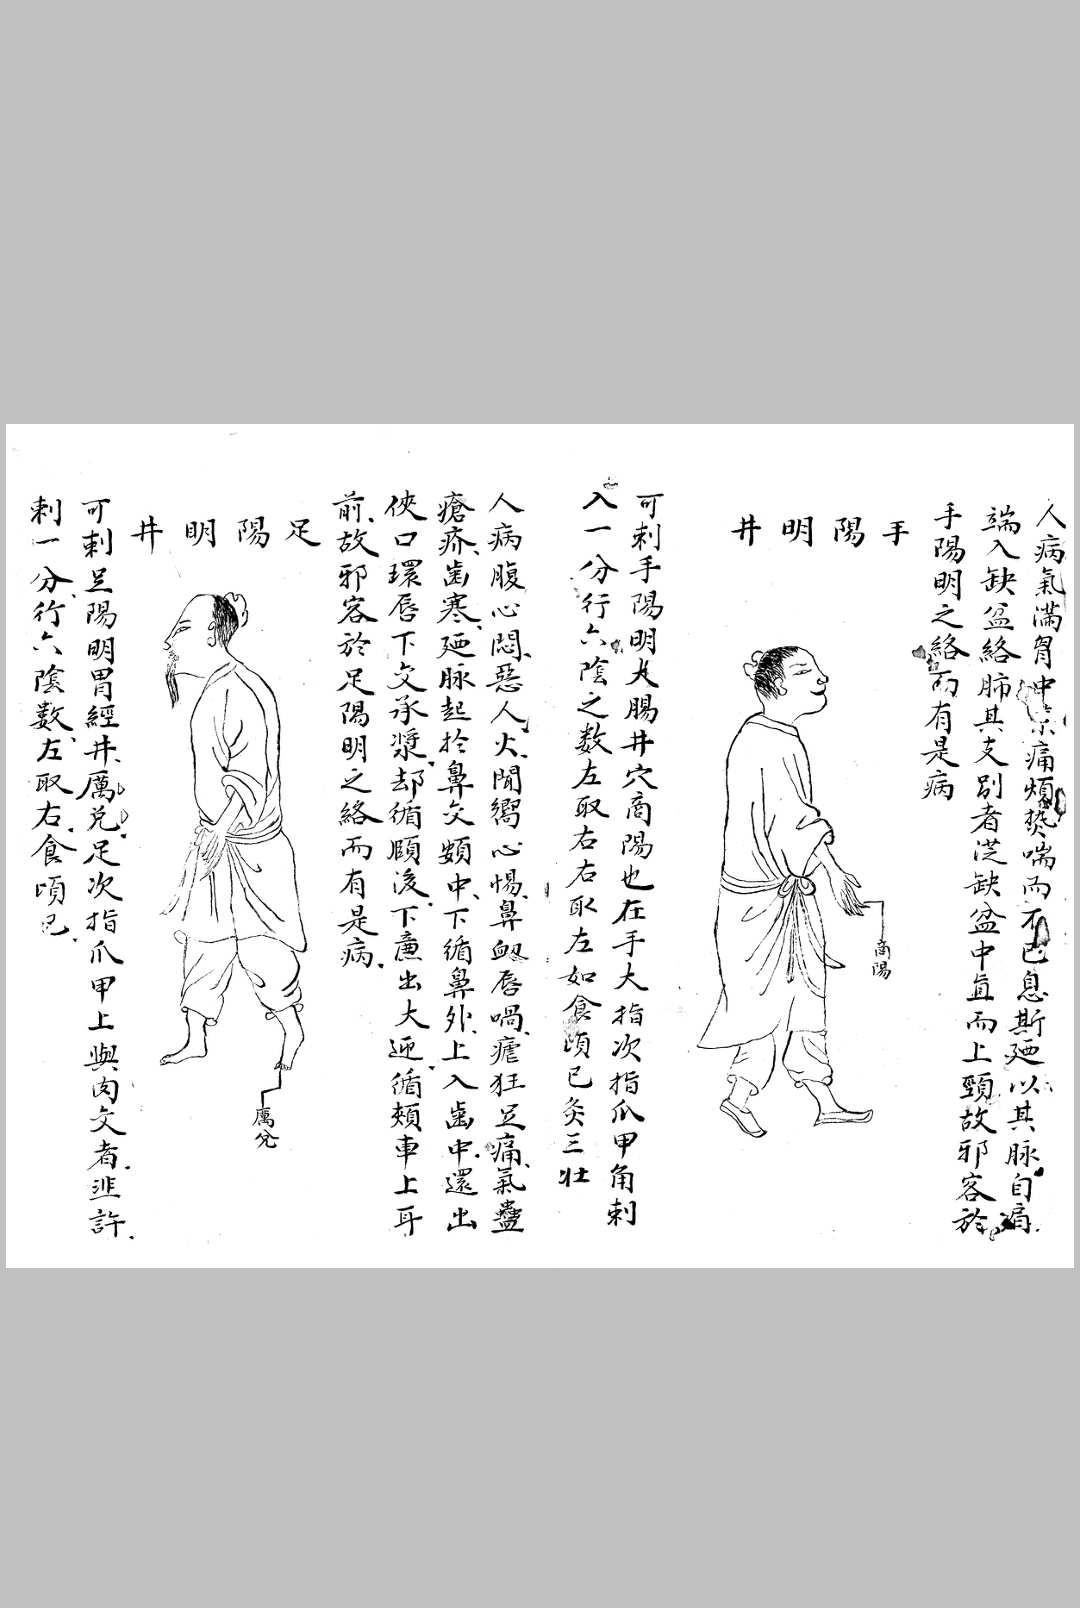 人病氣滿胷中京痛煩熱喘而不已息斯廼以其脉自肩
端入缺盆絡肺其支別者從缺盆中直而上頸故邪客於
手陽明之絡而有是病
手陽明井
商陽
可刺手陽明大腸井穴商陽也在手大指次指爪甲角刺
入一分行六陰之数左取右右取左如食頃已灸三壮
人病腹心悶惡人火聞嚮心惕鼻衂唇喎瘧狂足痛氣蠱
瘡疥齒寒廼脉起於鼻交頞中下循鼻外上入齒中還出
俠口環唇下交承漿却循頤後下廉出大迎循頰車上耳
前故邪客於足陽明之絡而有是病
足陽明井
厲兊
可刺足陽明胃經井厲兊足次指爪甲上與肉交者韭許
刺一分行六陰数左取右食頃已